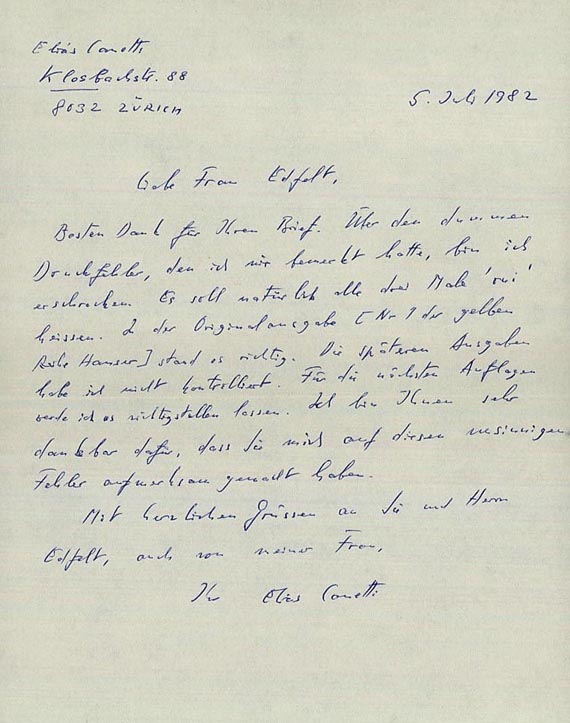 Elias Canetti
Klosbachstr. 88
8032 ZÜRICH
5. Juli 1982
Liebe Frau Edfelt,
Besten Dank für Ihren Brief. Über den dummen
Druckfehler, den ich nie bemerkt hatte, bin ich
erschrocken. Es soll natürlich alle drei Male 'oui'
heissen. In der Originalausgabe [Nr 1 der gelben
Reihe Hanser] stand es richtig. Die späteren Ausgaben
habe ich nicht kontrolliert. Für die nächsten Auflagen
werde ich es richtigstellen lassen. Ich bin Ihnen sehr
dankbar dafür, dass Sie mich auf diesen unsinnigen
Fehler aufmerksam gemacht haben.
Mit herzlichen Grüssen an Sie und Herrn
Edfelt, auch von meiner Frau,
Ihr Elias Canetti